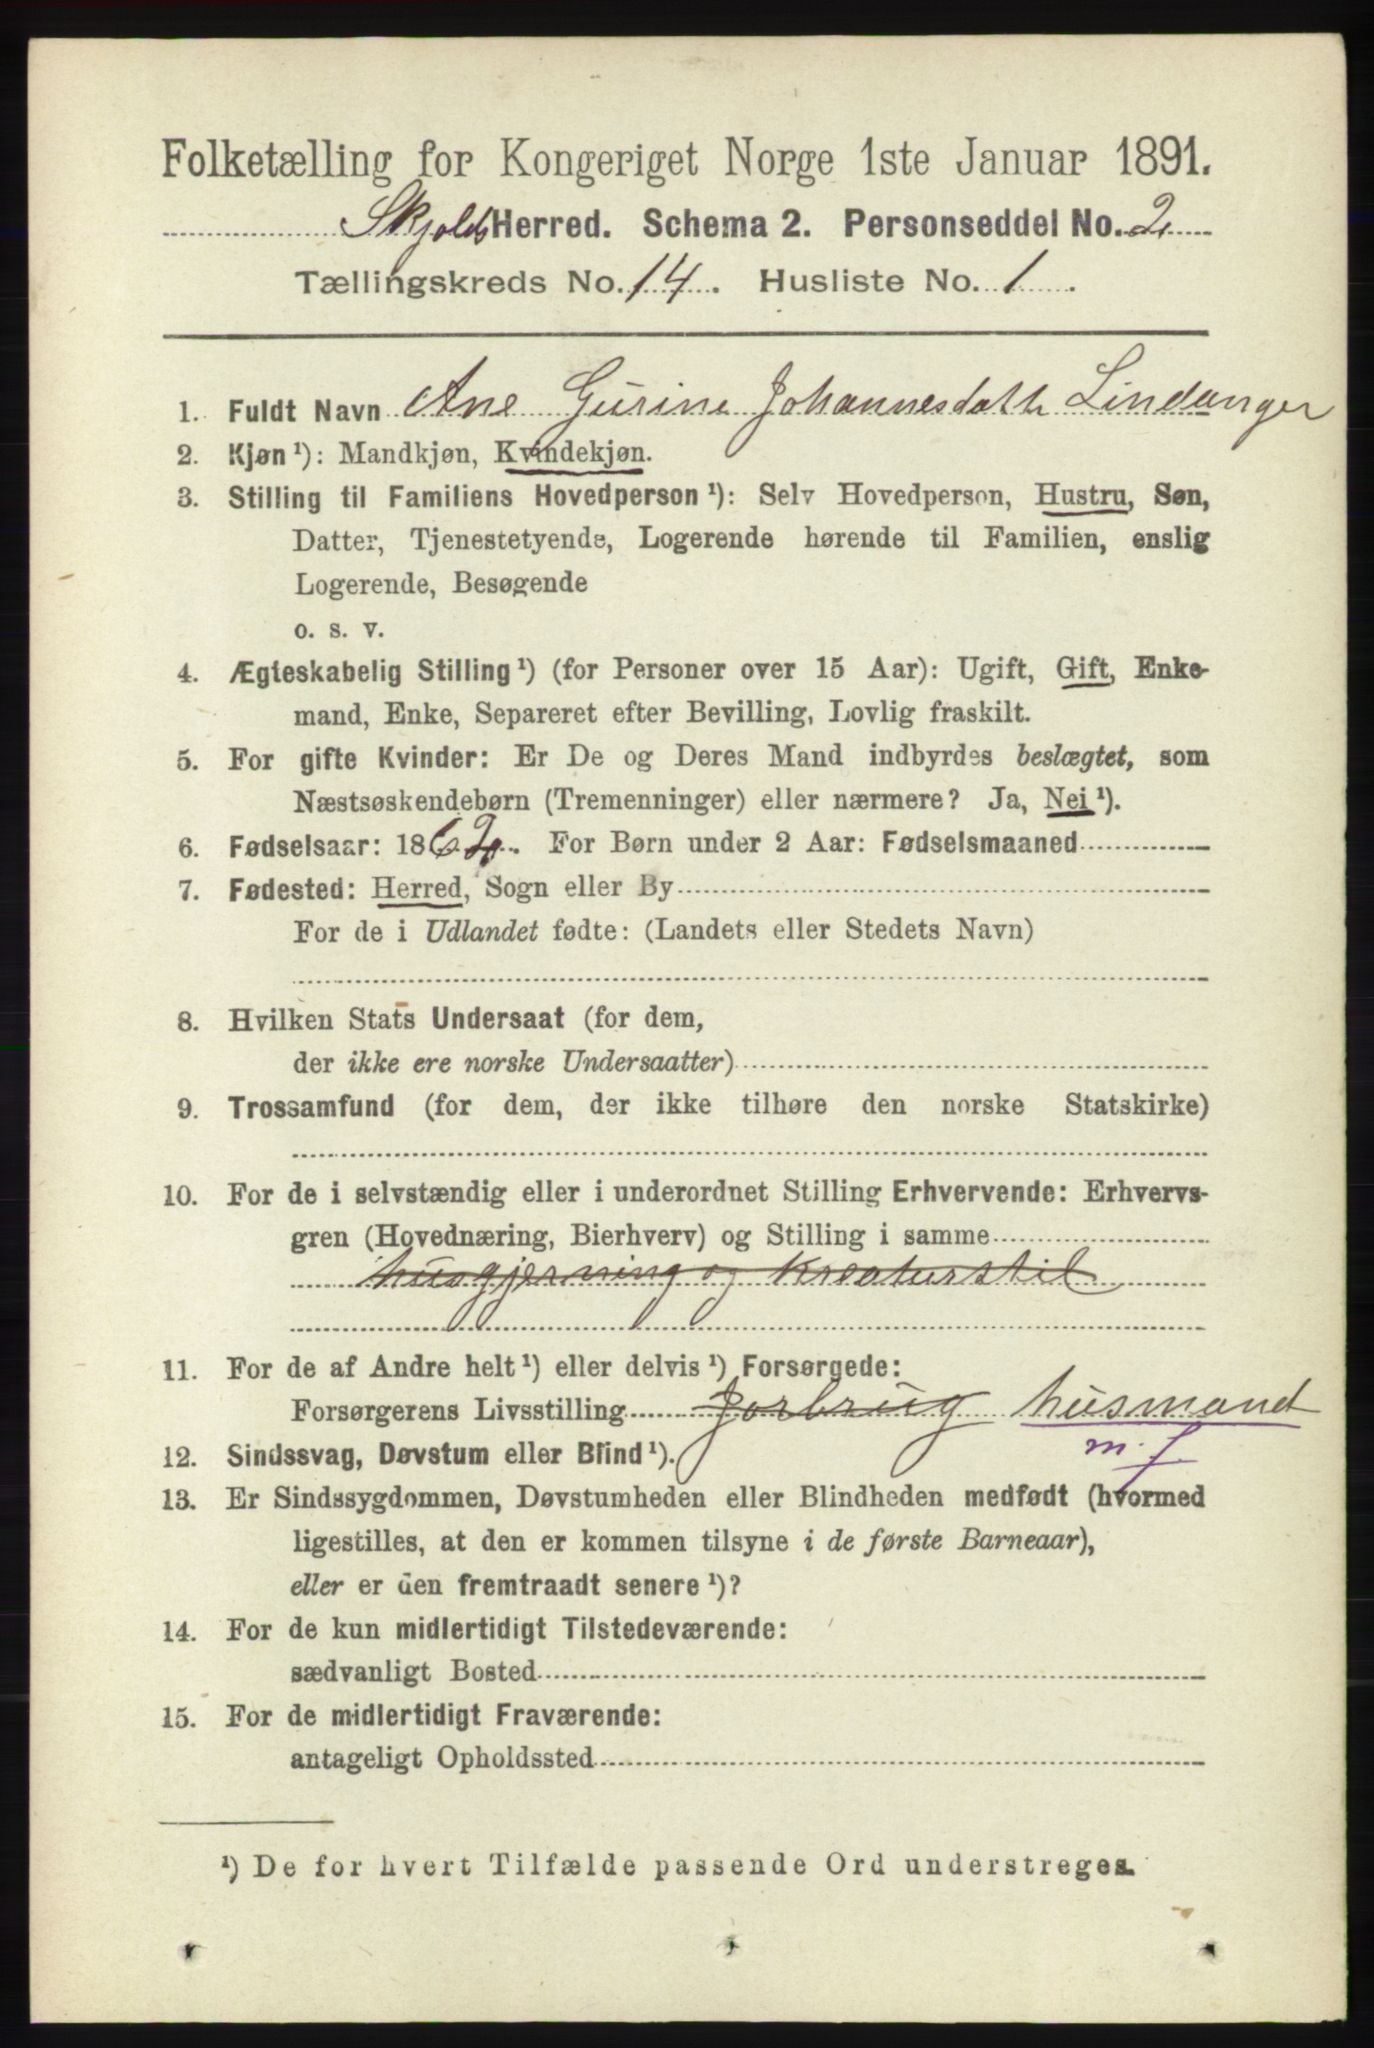 Folketælling for Kongeriget Norge 1ste Januar 1891.
Skjolds Herred. Schema 2. Personseddel No. 2
Tællingskreds No. 14. Husliste No. 1.
1. Fuldt Navn Ane Gurine Johannesdatter Lindanger
2. Kjøn ¹): Mandkjøn, Kvindekjøn.
3. Stilling til Familiens Hovedperson ¹): Selv Hovedperson, Hustru, Søn,
Datter, Tjenestetyende, Logerende hørende til Familien, enslig
Logerende, Besøgende
o. s. v.
4. Ægteskabelig Stilling ¹) (for Personer over 15 Aar): Ugift, Gift, Enke-
mand, Enke, Separeret efter Bevilling, Lovlig fraskilt.
5. For gifte Kvinder: Er De og Deres Mand indbyrdes beslægtet, som
Næstsøskendebørn (Tremenninger) eller nærmere? Ja, Nei ¹).
6. Fødselsaar: 1862. For Børn under 2 Aar: Fødselsmaaned
7. Fødested: Herred, Sogn eller By
For de i Udlandet fødte: (Landets eller Stedets Navn)
8. Hvilken Stats Undersaat (for dem,
der ikke ere norske Undersaatter)
9. Trossamfund (for dem, der ikke tilhøre den norske Statskirke)
10. For de i selvstændig eller i underordnet Stilling Erhvervende: Erhvervs-
gren (Hovednæring, Bierhverv) og Stilling i samme
husgjerning og Kreaturstil
11. For de af Andre helt ¹) eller delvis ¹) Forsørgede:
Forsørgerens Livsstilling Jorbrug husmand
m. j.
12. Sindssvag, Døvstum eller Blind ¹).
13. Er Sindssygdommen, Døvstumheden eller Blindheden medfødt (hvormed
ligestilles, at den er kommen tilsyne i de første Barneaar),
eller er den fremtraadt senere ¹)?
14. For de kun midlertidigt Tilstedeværende:
sædvanligt Bosted
15. For de midlertidigt Fraværende:
antageligt Opholdssted
¹) De for hvert Tilfælde passende Ord understreges.